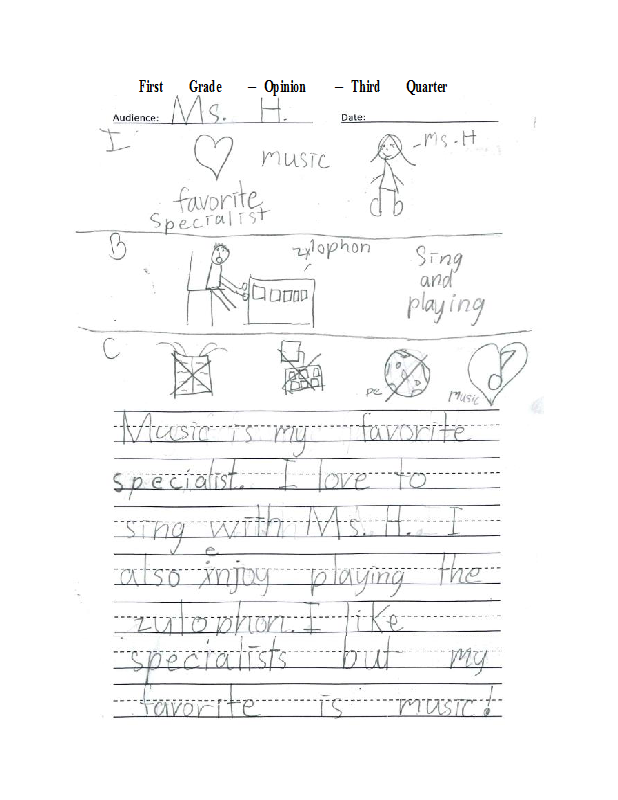 First Grade – Opinion – Third Quarter
Audience: Ms. H. Date:
I
music
-Ms. H
favorite
specialist
B
zylophon
Sing
and
playing
C
PE
Music
Music is my favorite
specialist. I love to
sing with Ms. H. I
e
also injoy playing the
zylophon. I like
specialists but my
favorite is music!